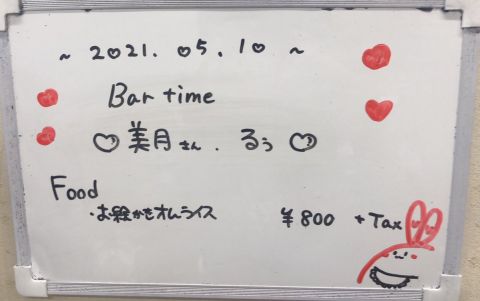 ~ 2021. 05. 10 ~
Bar time
♡美月さん. るぅ♡
Food
・お絵かきオムライス ¥800 + Tax